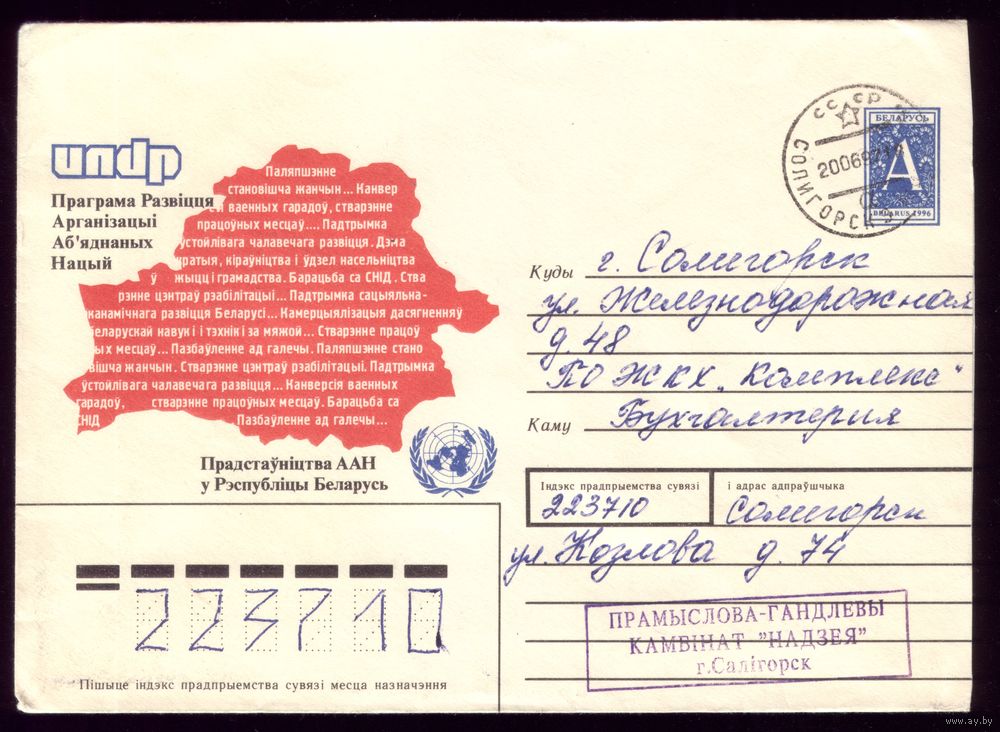 СССР
СОЛИГОРСК
БЕЛАРУСЬ
A
BELARUS 1996
undp
Праграма Развіцця
Арганізацыі
Аб'яднаных
Нацый
Паляпшэнне
становішча жанчын... Канвер
сія ваенных гарадоў, стварэнне
працоўных месцаў.... Падтрымка
ўстойлівага чалавечага развіцця. Дэма
кратыя, кіраўніцтва і ўдзел насельніцтва
ў жыцці грамадства. Барацьба са СНІД. Ства
рэнне цэнтраў рэабілітацыі... Падтрымка сацыяльна-
эканамічнага развіцця Беларусі... Камерцыялізацыя дасягненняў
беларускай навукі і тэхнікі за мяжой... Стварэнне працоў
ных месцаў... Пазбаўленне ад галечы. Паляпшэнне стано
вішча жанчын. Стварэнне цэнтраў рэабілітацыі. Падтрымка
ўстойлівага чалавечага развіцця... Канверсія ваенных
гарадоў, стварэнне працоўных месцаў. Барацьба са
СНІД Пазбаўленне ад галечы...
Прадстаўніцтва ААН
у Рэспубліцы Беларусь
Куды г. Солигорск
ул. Железнодорожная
д. 48
ПО ЖКХ „Комплекс“
Каму Бухгалтерия
Індэкс прадпрыемства сувязі і адрас адпраўшчыка
223710 Солигорск
ул. Козлова д. 74
ПРАМЫСЛОВА-ГАНДЛЕВЫ
КАМБІНАТ "НАДЗЕЯ"
г.Салігорск
223710
Пішыце індэкс прадпрыемства сувязі месца назначэння
www.ay.by